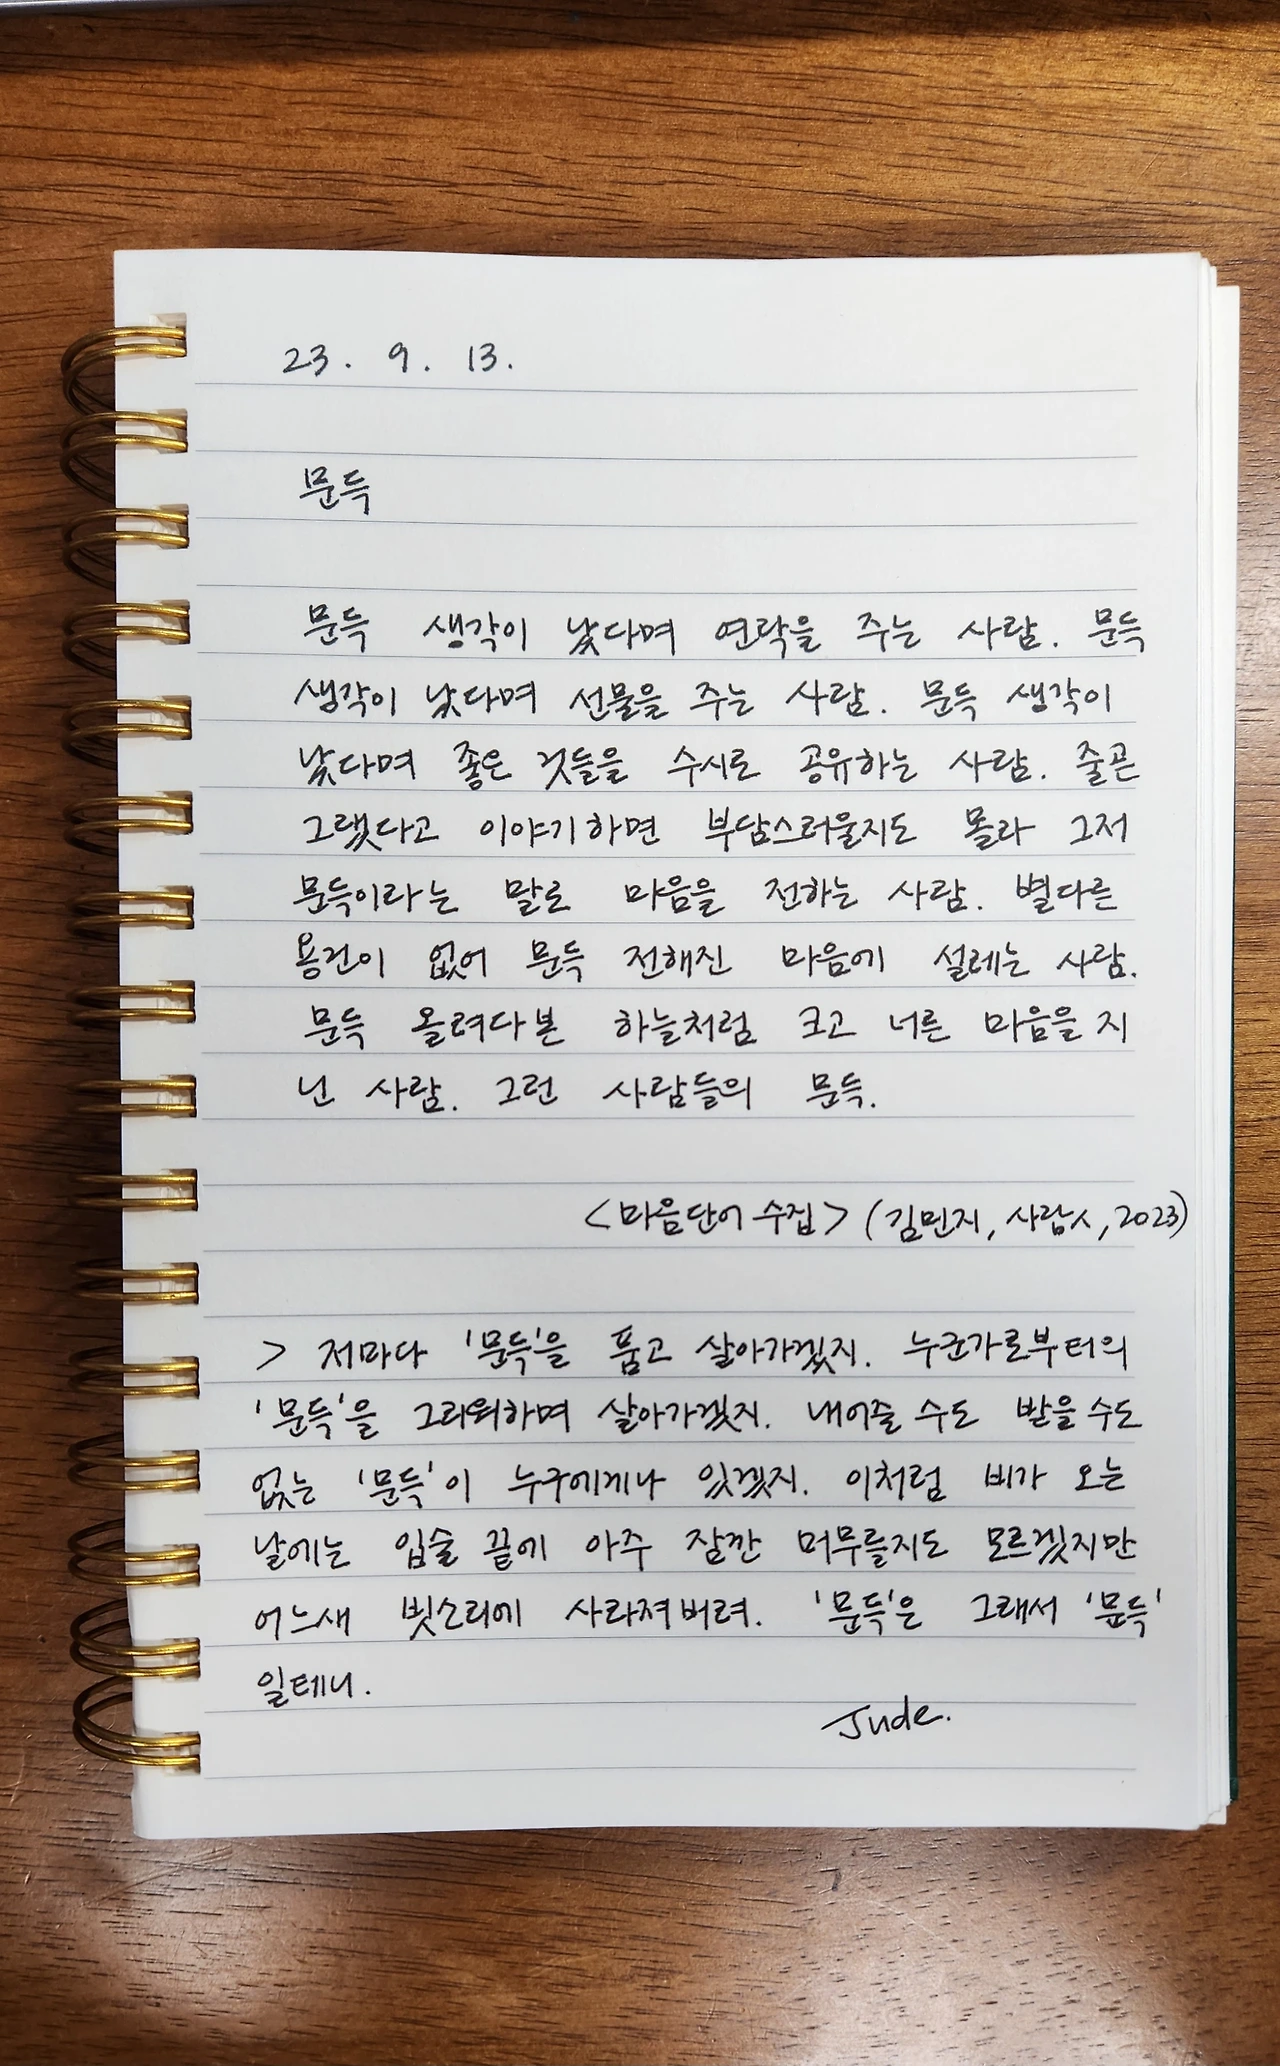 23. 9. 13.
문득
문득 생각이 났다며 연락을 주는 사람. 문득
생각이 났다며 선물을 주는 사람. 문득 생각이
났다며 좋은 것들을 수시로 공유하는 사람. 줄곧
그랬다고 이야기하면 부담스러울지도 몰라 그저
문득이라는 말로 마음을 전하는 사람. 별다른
용건이 없어 문득 전해진 마음에 설레는 사람.
문득 올려다본 하늘처럼 크고 너른 마음을 지
닌 사람. 그런 사람들의 문득.
<마음단어 수집> (김민지, 사람人, 2023)
> 저마다 '문득'을 품고 살아가겠지. 누군가로부터의
'문득'을 그리워하며 살아가겠지. 내어줄 수도 받을 수도
없는 '문득'이 누구에게나 있겠지. 이처럼 비가 오는
날에는 입술 끝에 아주 잠깐 머무를지도 모르겠지만
어느새 빗소리에 사라져버려. '문득'은 그래서 '문득'
일테니.
Jude.